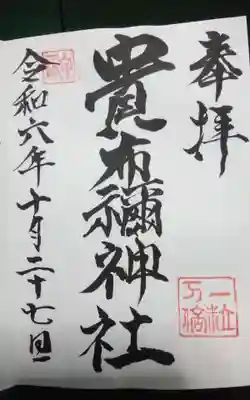 奉拝
一粒万倍
貴布禰神社
令和六年十月二十七日